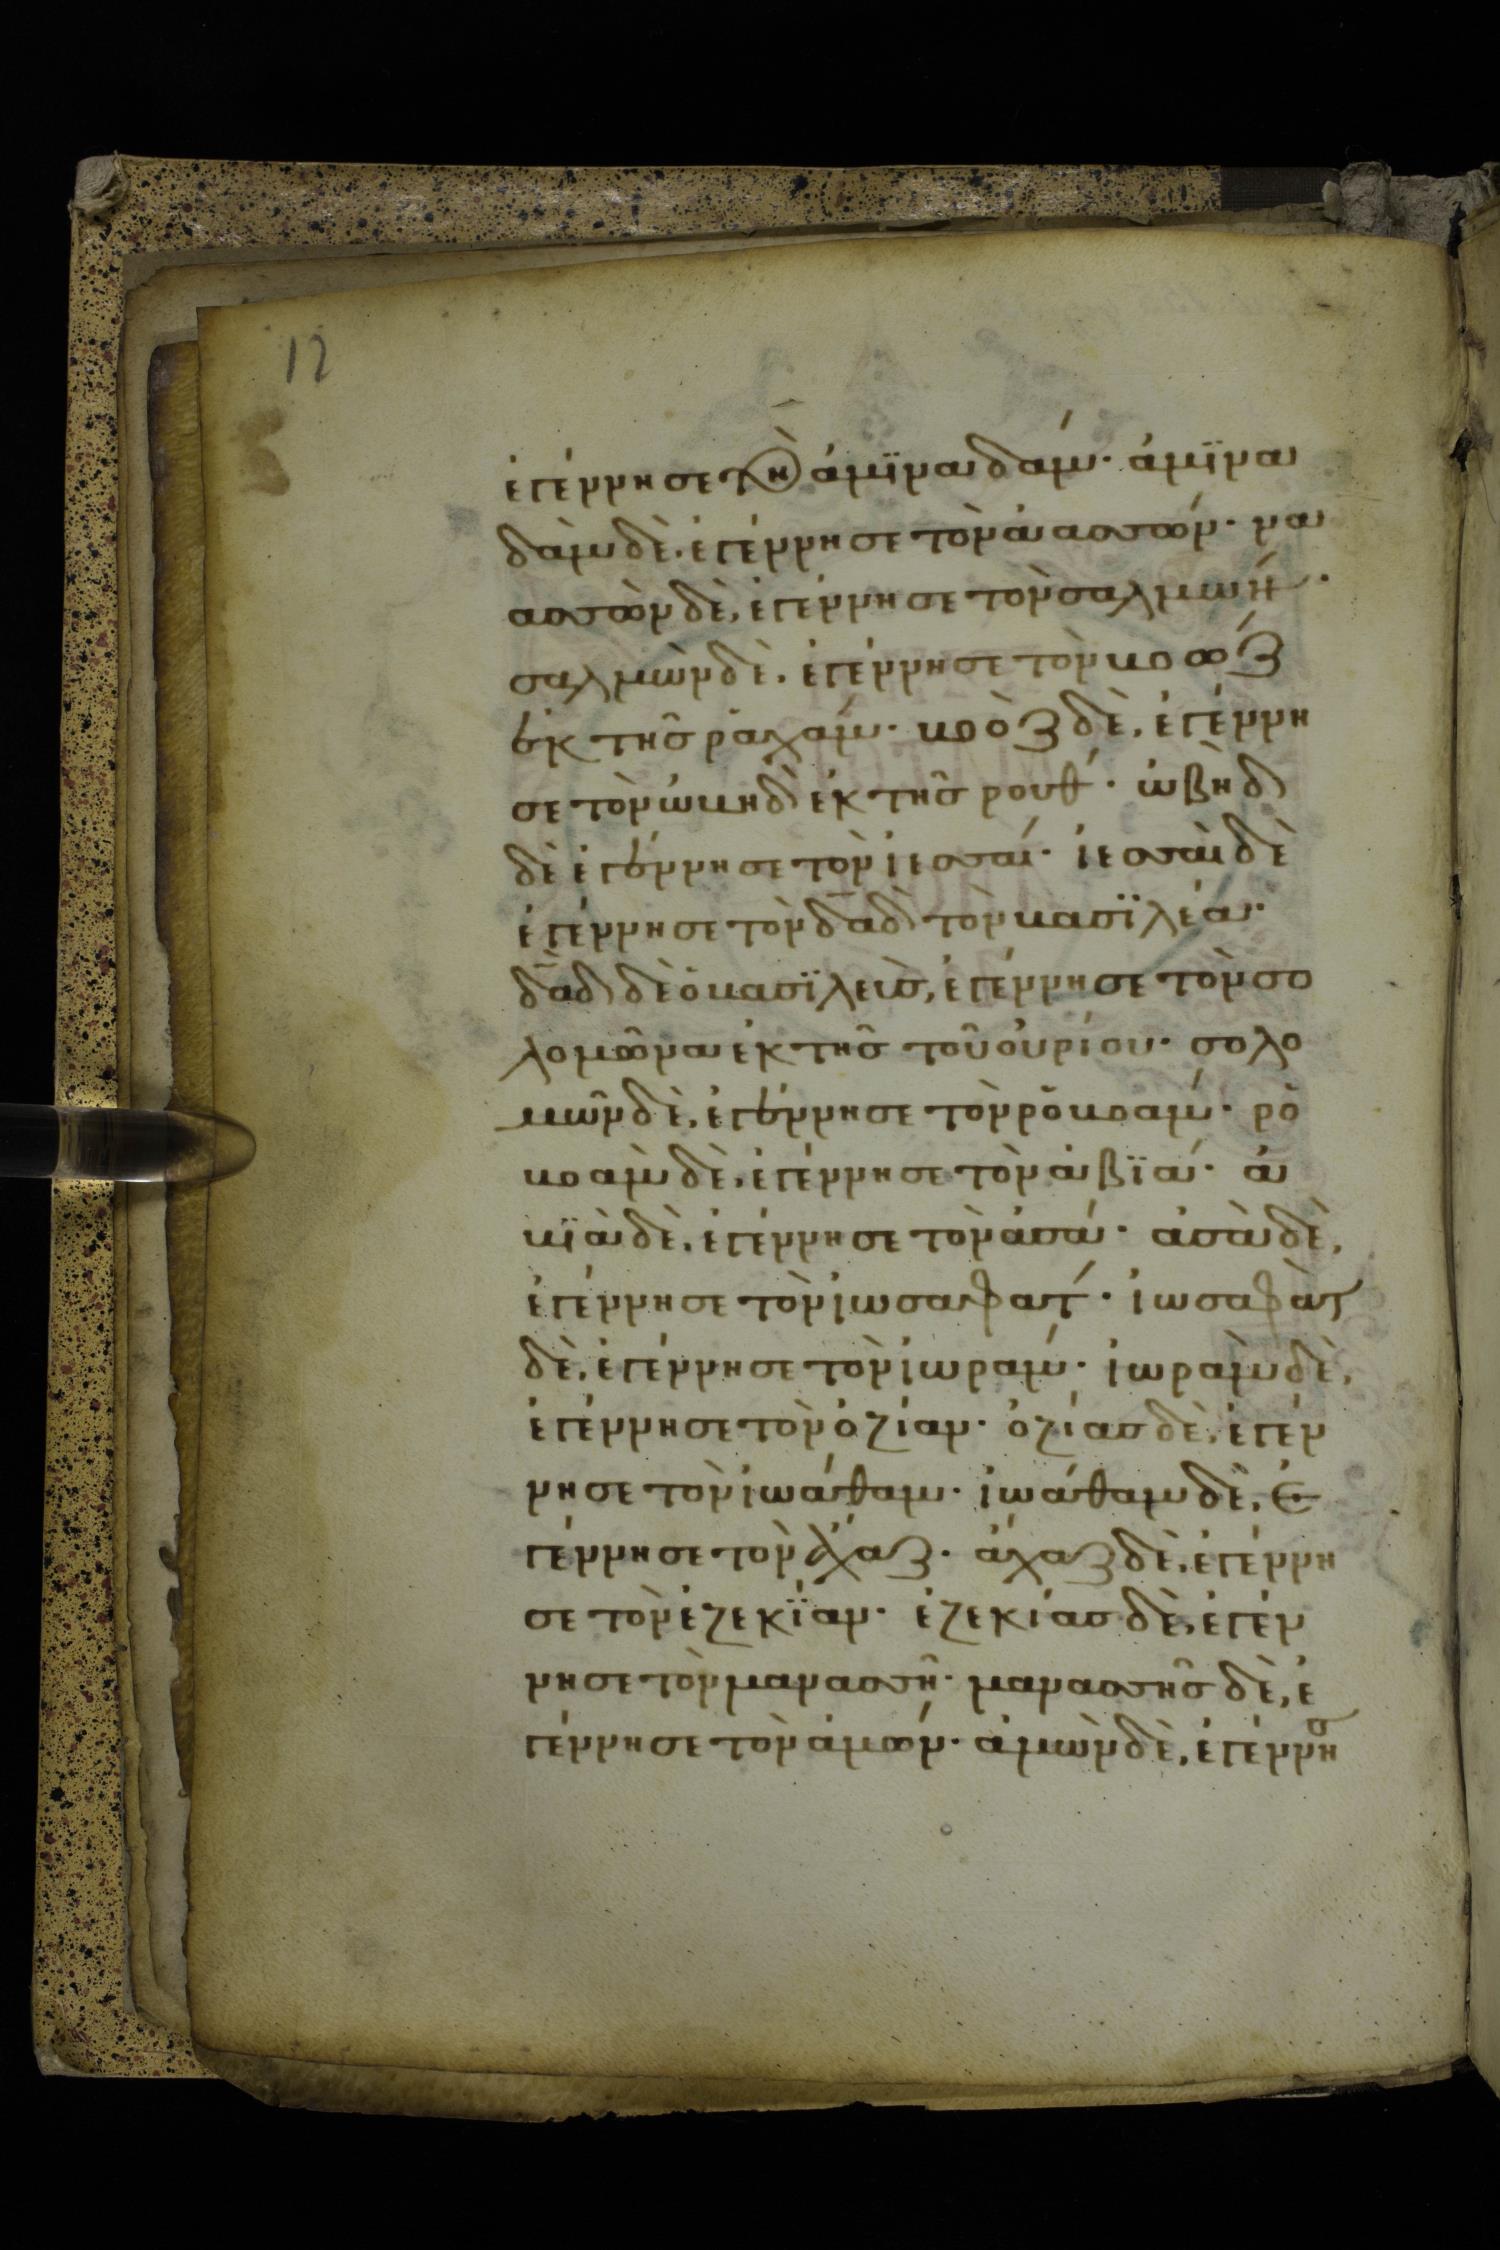 12
ἐγέννησε τὸν ἀμϊναδάμ· ἀμϊνα
δὰμ δὲ, ἐγέννησε τὸν ἀασσών· να
ασσὼν δὲ, ἐγέννησε τὸν σαλμών·
σαλμὼν δὲ, ἐγέννησε τὸν βοὸζ
ἐκ τῆς ῥαχάμ· βοὸζ δὲ, ἐγέννη
σε τὸν ὠβηδ ἐκ τῆς ρούθ· ὠβηδ
δὲ ἐγέννησε τὸν ἰεσσαί· ἰεσσαὶ δὲ
ἐγέννησε τὸν δᾱδ τὸν βασϊλέα·
δᾱδ δὲ ὁ βασϊλεὺς, ἐγέννησε τὸν σο
λομῶνα ἐκ τῆς τοῦ οὐρίου· σολο
μῶν δὲ, ἐγέννησε τὸν ῥοβοάμ· ῥο
βοὰμ δὲ, ἐγέννησε τὸν ἀβϊά· ἀ
βϊὰ δὲ, ἐγέννησε τὸν ἀσά· ἀσὰ δὲ,
ἐγέννησε τὸν ἰωσαφάτ· ἰωσαφὰτ
δὲ, ἐγέννησε τὸν ἰωράμ· ἰωρὰμ δὲ,
ἐγέννησε τὸν ὀζίαν· ὀζίας δὲ, ἐγέν
νησε τὸν ἰωάθαμ· ἰωάθαμ δὲ, ἐ
γέννησε τὸν ἄχαζ· ἄχαζ δὲ, ἐγέννη
σε τὸν ἐζεκΐαν· ἐζεκίας δὲ, ἐγέν
νησε τὸν μανασσῆ· μανασσῆς δὲ, ἐ
γέννησε τὸν ἀμών· ἀμὼν δὲ, ἐγέννησ